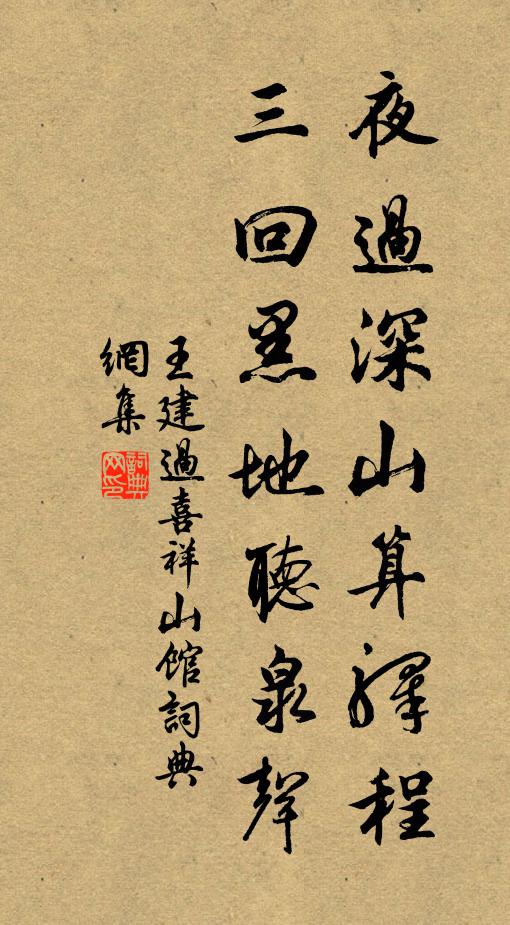 夜過深山算驛程
三回黑地聽泉聲
王建過喜祥山館詞典
網集
詞典网印